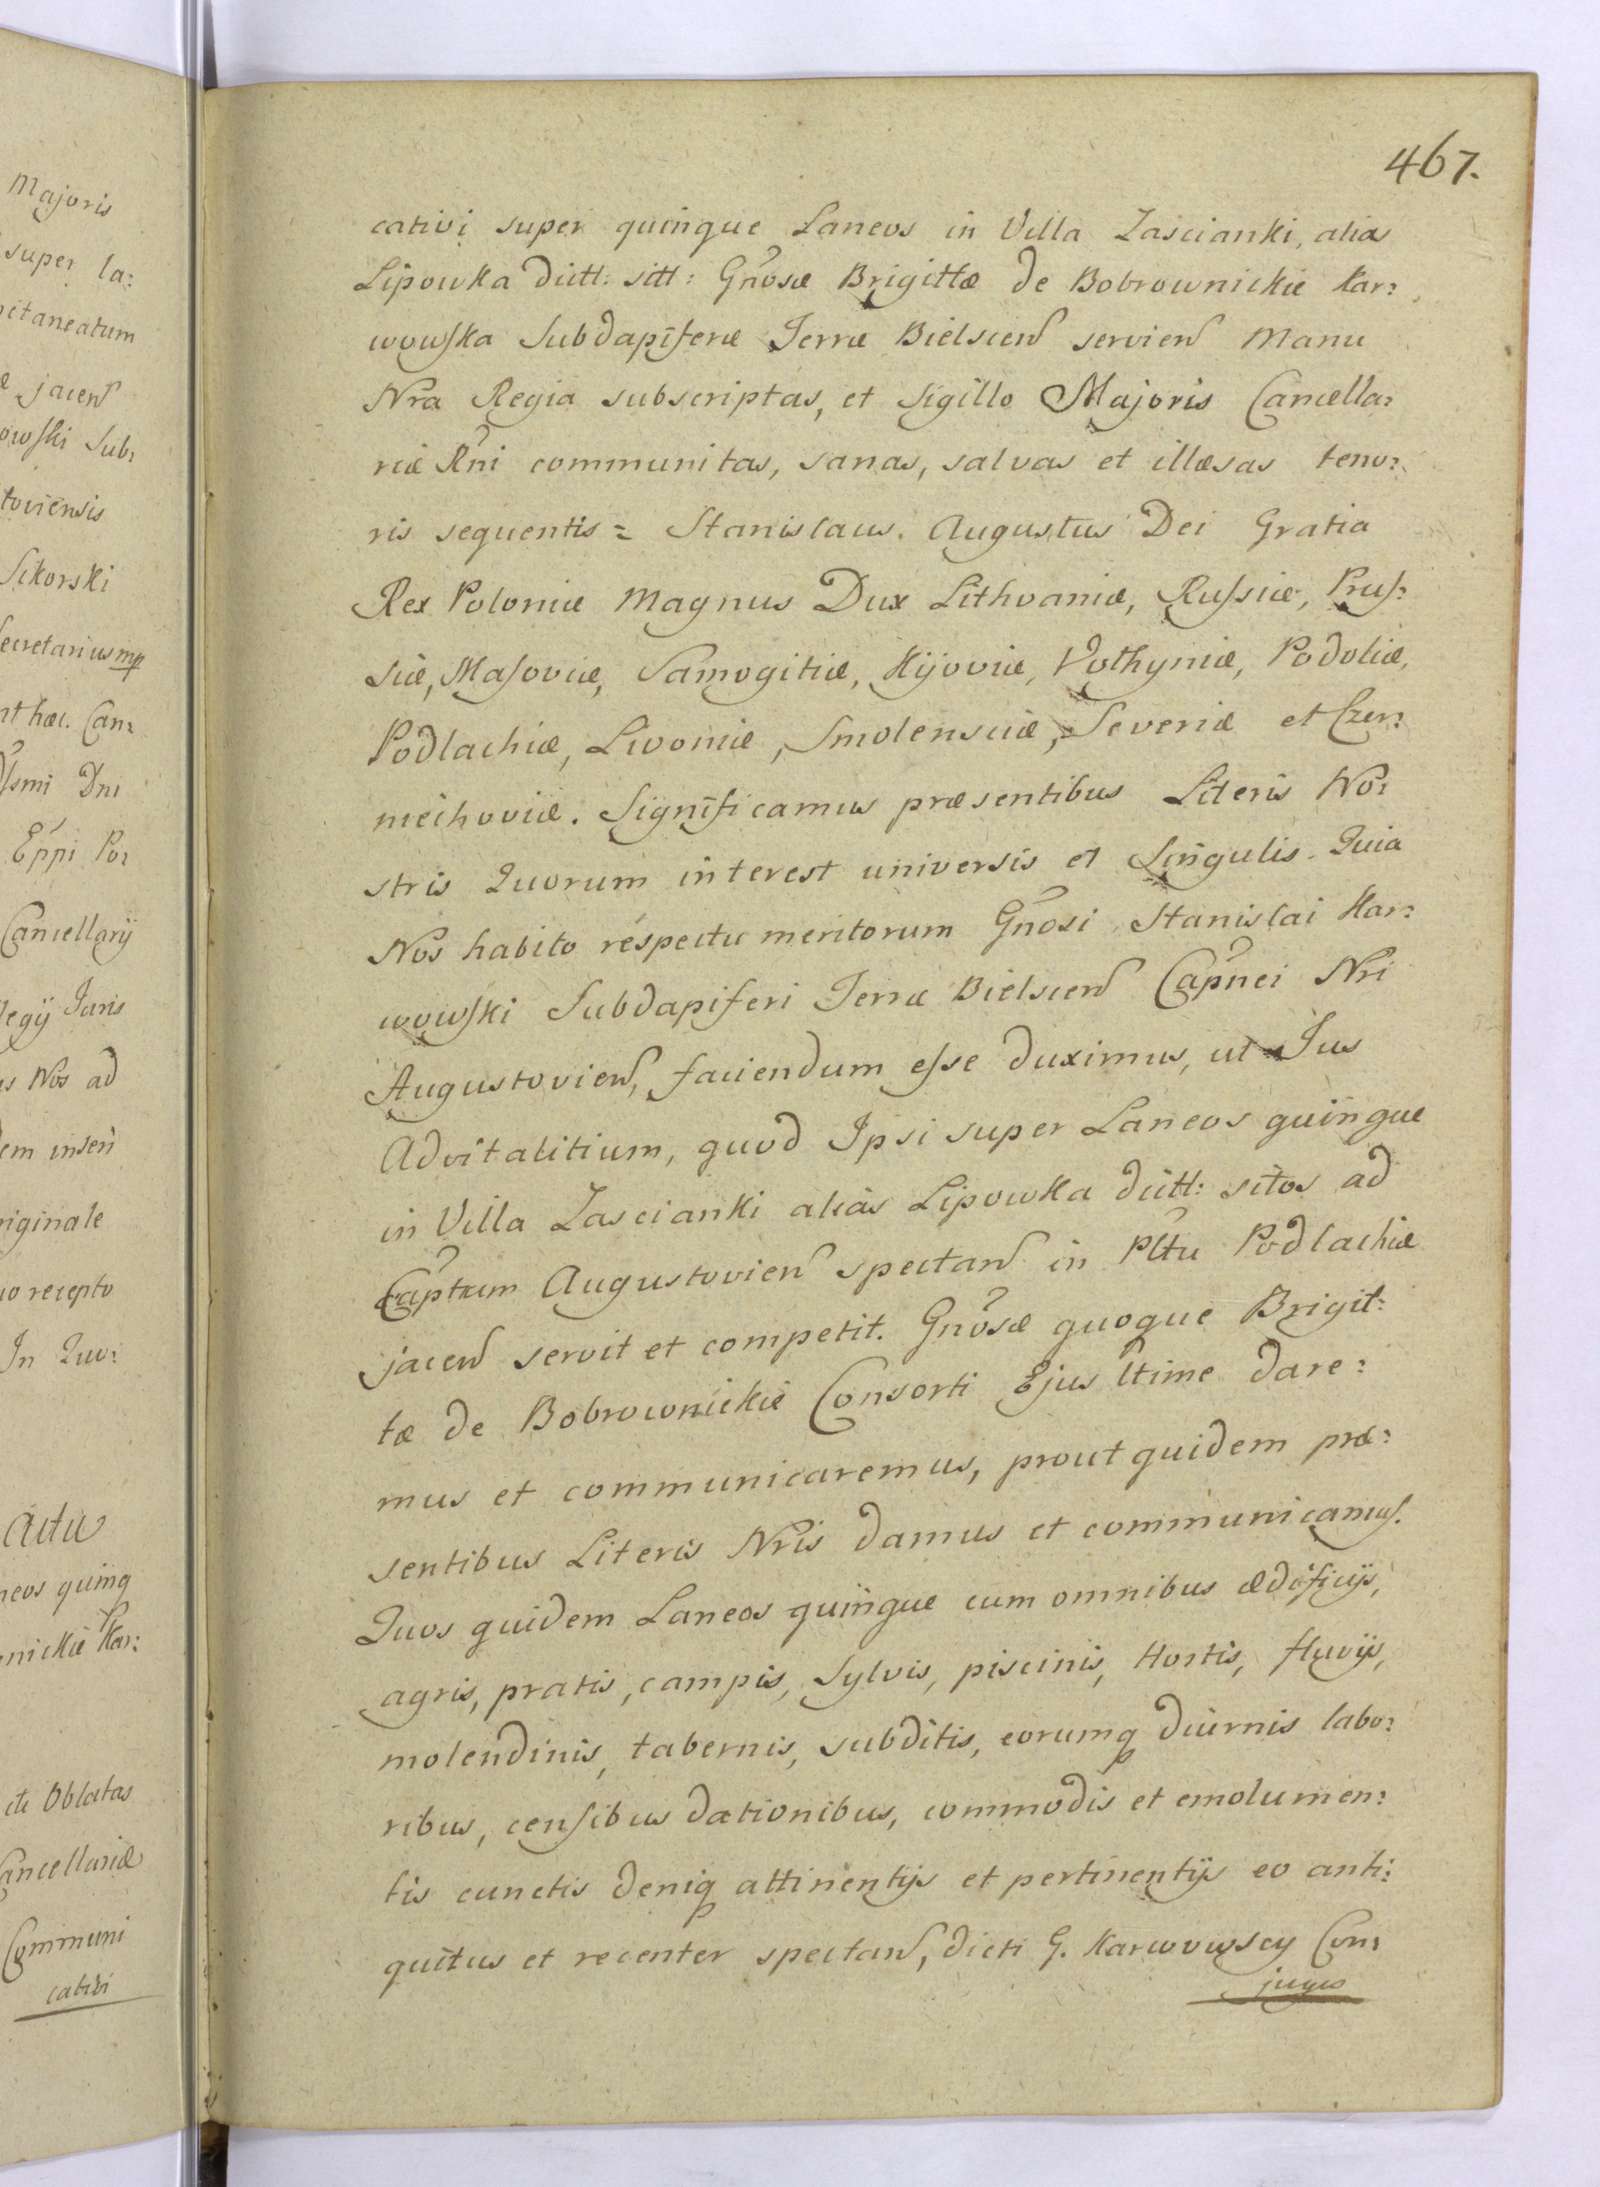 Majoris
super la:
pitaneatum
æ jacen
owski Sub:
toviensis
Sikorski
Secretarius mp
nt hæc. Can:
Dni
Eppi Po:
Cancellarij
legij Juris
us Nos ad
dem inseri
riginale
uo recepto
In Quo:
Actu
neos quinq
nickie Kar:
cti Oblatas
Cancellariæ
Communi
cativi
467.
cativi super quinque Laneos in Villa Zascianki, alias
Lipowka dictt: sitt: Gnosæ Brigittæ de Bobrownickie Kar:
wowska Subdapiferæ Terræ Bielscen servien Manu
Nra Regia subscriptas, et Sigillo Majoris Cancella:
riæ Rni communitas, sanas, salvas et illæsas teno:
ris sequentis = Stanislaus. Augustus Dei Gratia
Rex Poloniæ Magnus Dux Lithvaniæ, Russiæ, Prus:
siæ, Masoviæ, Samogitiæ, Kijoviæ, Volhyniæ, Podoliæ,
Podlachiæ, Livoniæ, Smolensciæ, Severiæ et Czer:
niechoviæ. Significamus præsentibus Literis No:
stris Quorum interest universis et Singulis. Quia
Nos habito respectu meritorum Gnosi Stanislai Kar:
wowski Subdapiferi Terræ Bielscen Capnei Nri
Augustovien, faciendum esse duximus, ut Jus
Advitalitium, quod Ipsi super Laneos quinque
in Villa Zascianki alias Lipowka dictt: sitos ad
Captum Augustovien spectan in Pltu Podlachiæ
jacen servit et competit. Gnosæ quoque Brigit:
tæ de Bobrownickie Consorti Ejus ltime dare:
mus et communicaremus, prout quidem præ:
sentibus Literis Nris damus et communicamus.
Quos quidem Laneos quinque cum omnibus ædificijs,
agris, pratis, campis, Sylvis, piscinis, Hortis, fluvijs,
molendinis, tabernis, subditis, eorumq diurnis labo:
ribus, censibus dationibus, commodis et emolumen:
tis cunctis deniq attinentijs et pertinentijs eo anti:
quitus et recenter spectan, dicti G. Karwowscy Con:
juges